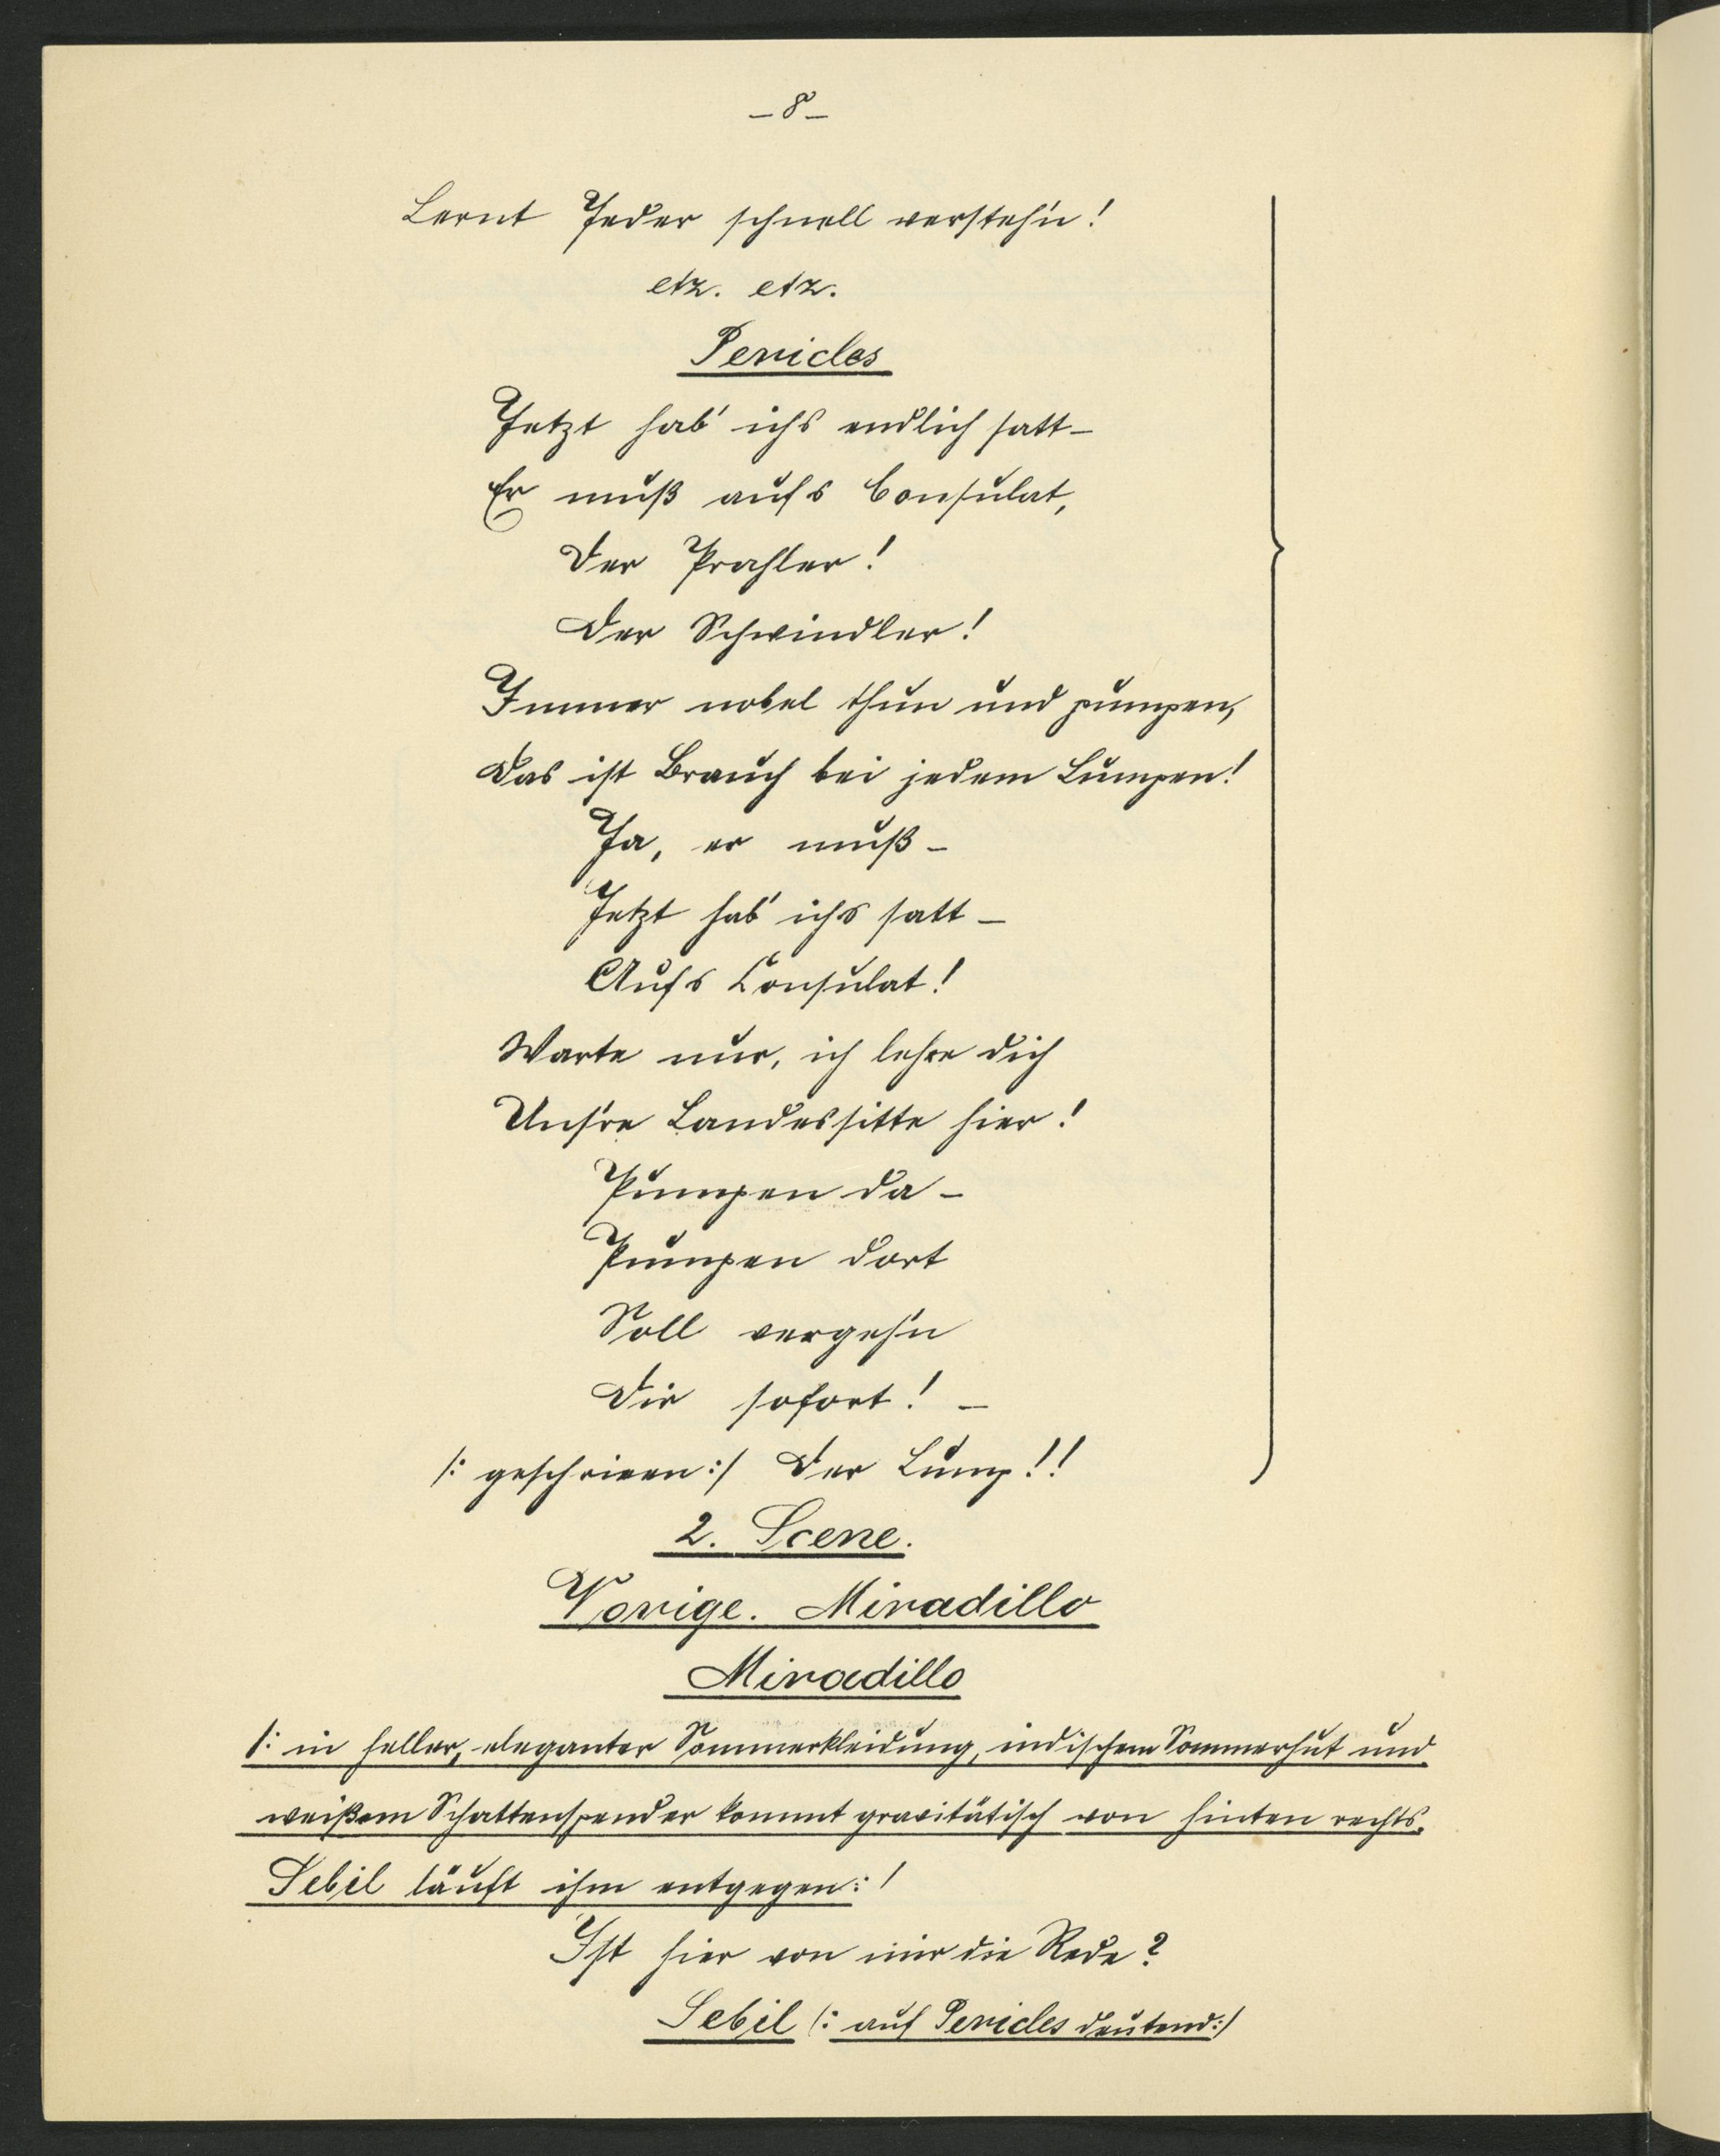 – 8 –
Lernt Jeder schnell versteh'n!
etz. etz.
Pericles
Jetzt hab' ichs endlich satt –
Er muß aufs Consulat,
Der Prahler!
Der Schwindler!
Immer nobel thun und pumpen,
Das ist Brauch bei jedem Lumpen!
Ja, er muß –
Jetzt hab' ichs satt –
Aufs Consulat!
Warte nur, ich lehre dich
Uns're Landessitte hier!
Pumpen da –
Pumpen dort
Soll vergeh'n
Dir sofort! –
/: geschrieen :/ Der Lump!!
2. Scene.
Vorige. Miradillo
Miradillo
/: in heller, eleganter Sommerkleidung, indischem Sommerhut und
weißem Schattenspender kommt gravitätisch von hinten rechts.
Sebil läuft ihm entgegen :/
Ist hier von mir die Rede?
Sebil (: auf Pericles deutend :/